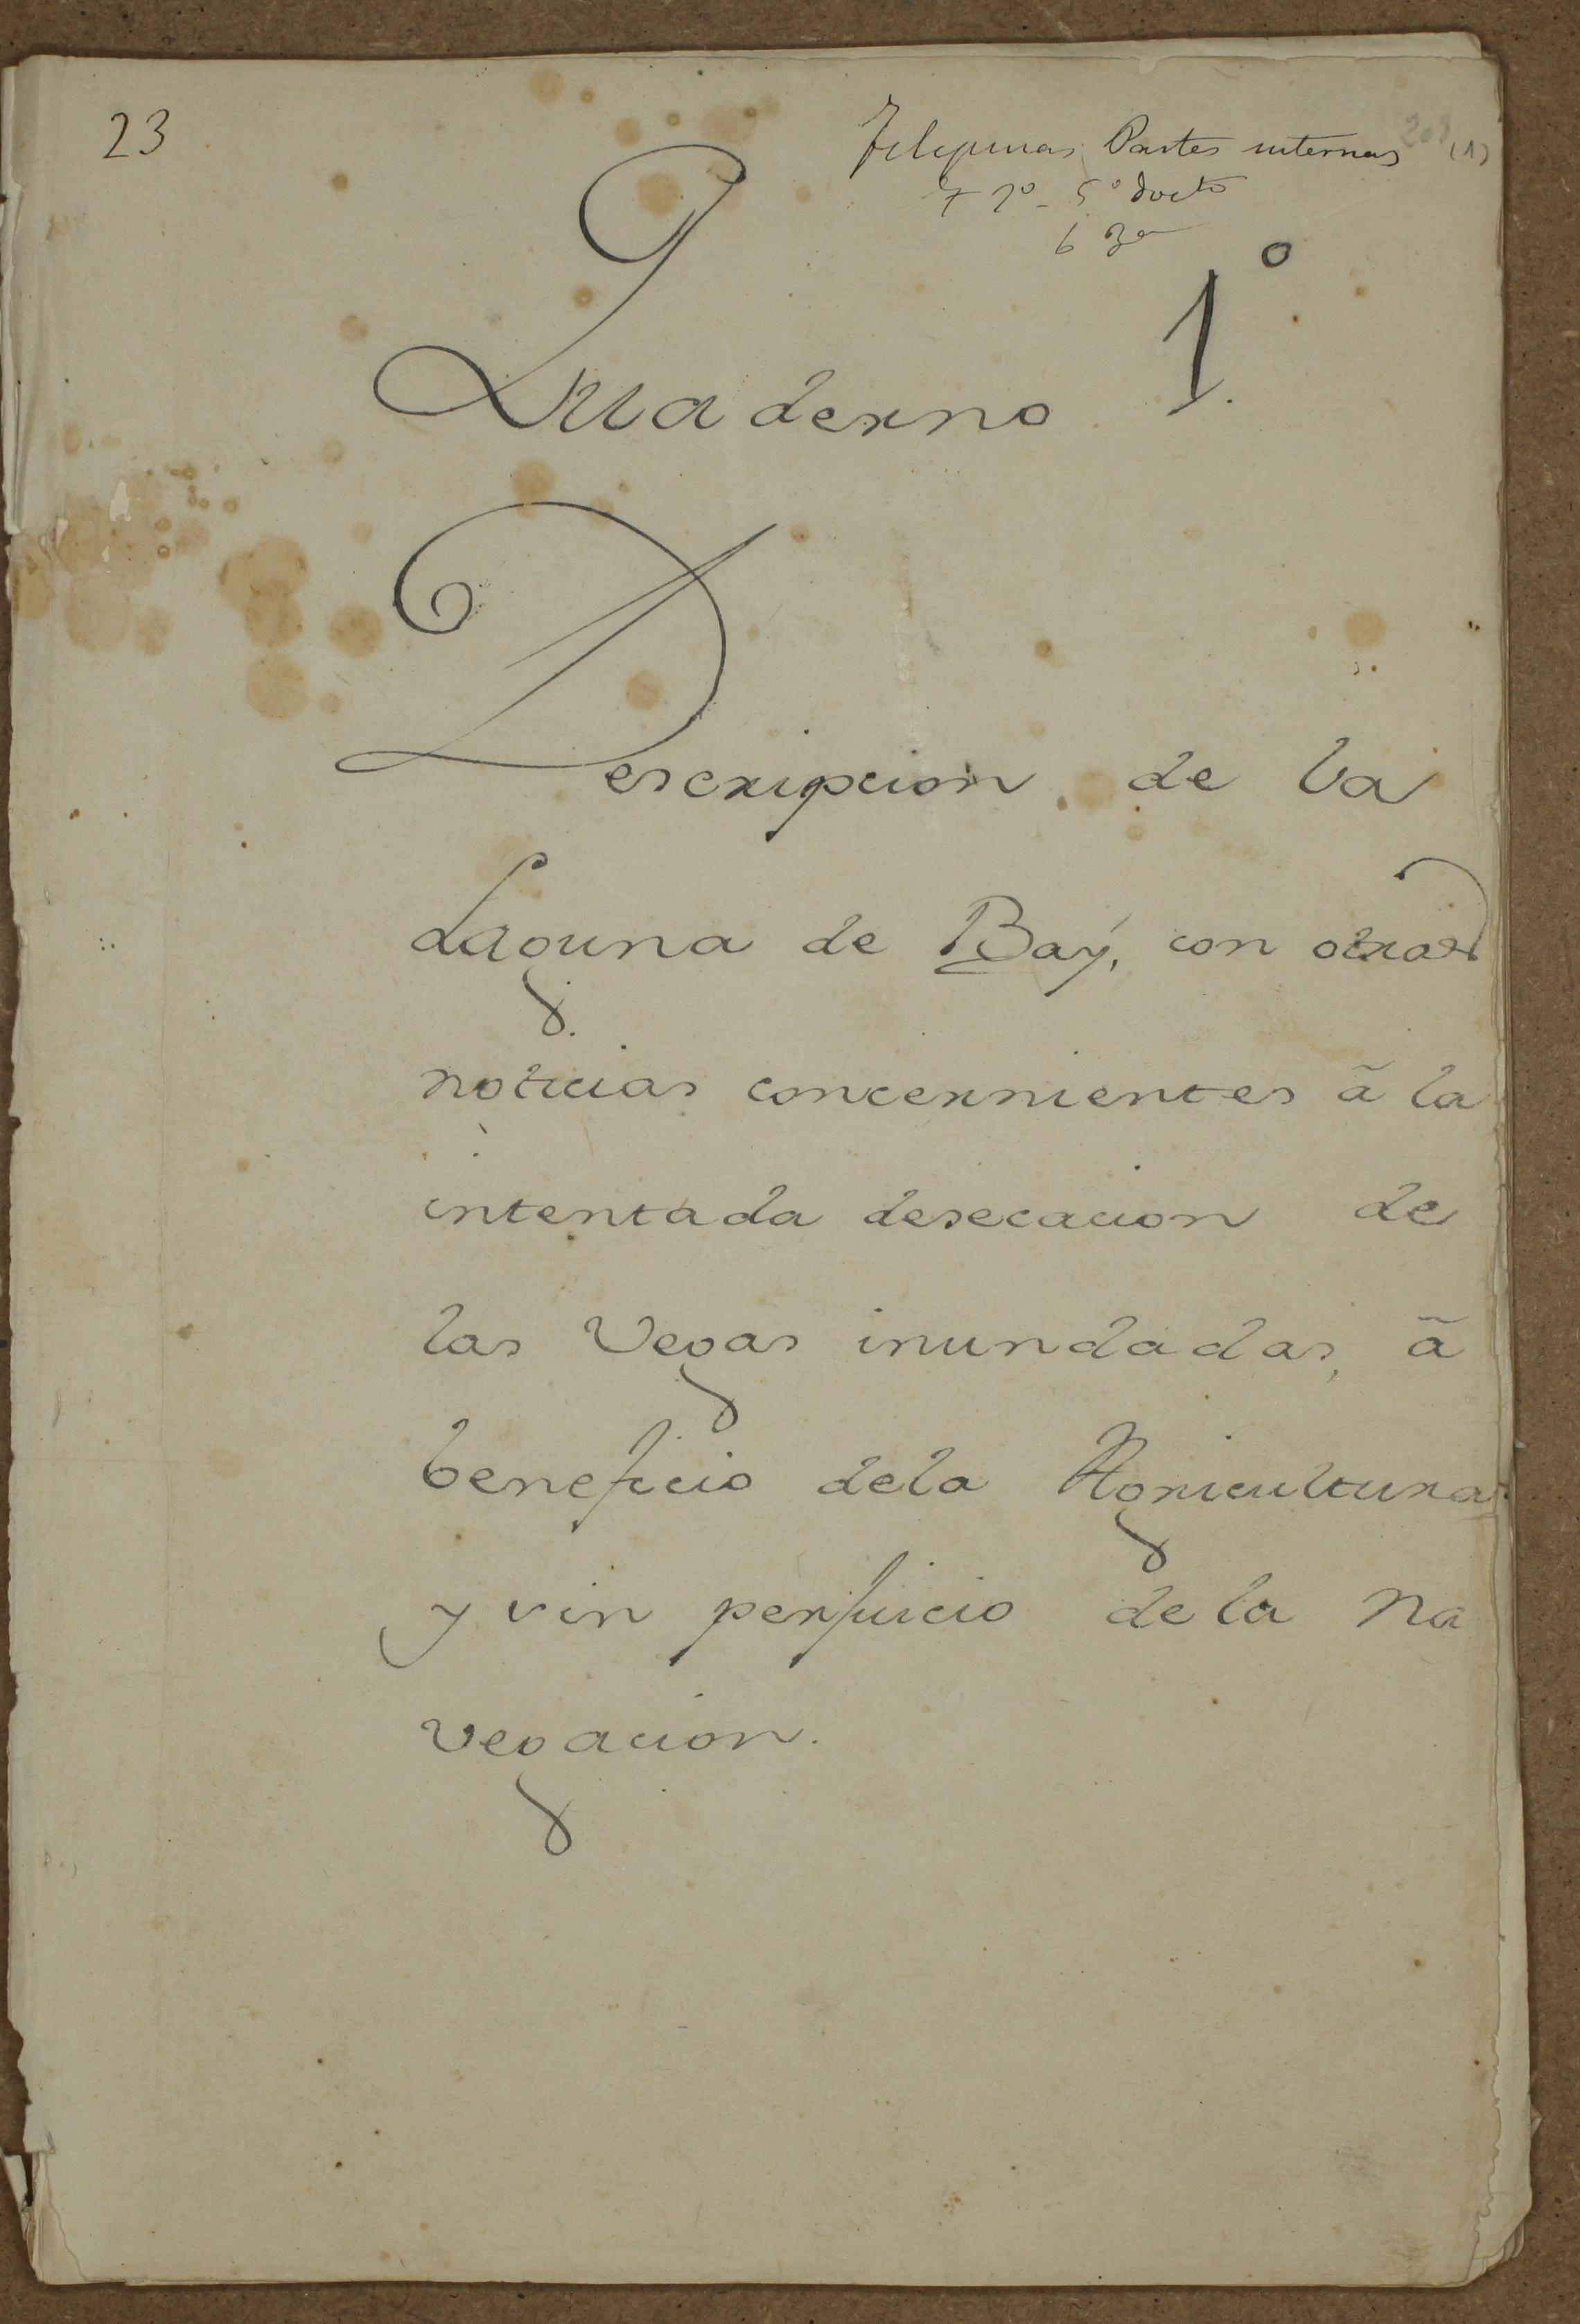 23
Filipinas Partes internas (1)
5º docto
Quaderno 1º
Descripcion de la
Laguna de Baÿ, con otras
noticias concernientes ã la
intentada desecacion de
las Vegas inundadas, ã
beneficio dela Agricultura
y sin perjuicio de la Na
vegacion.